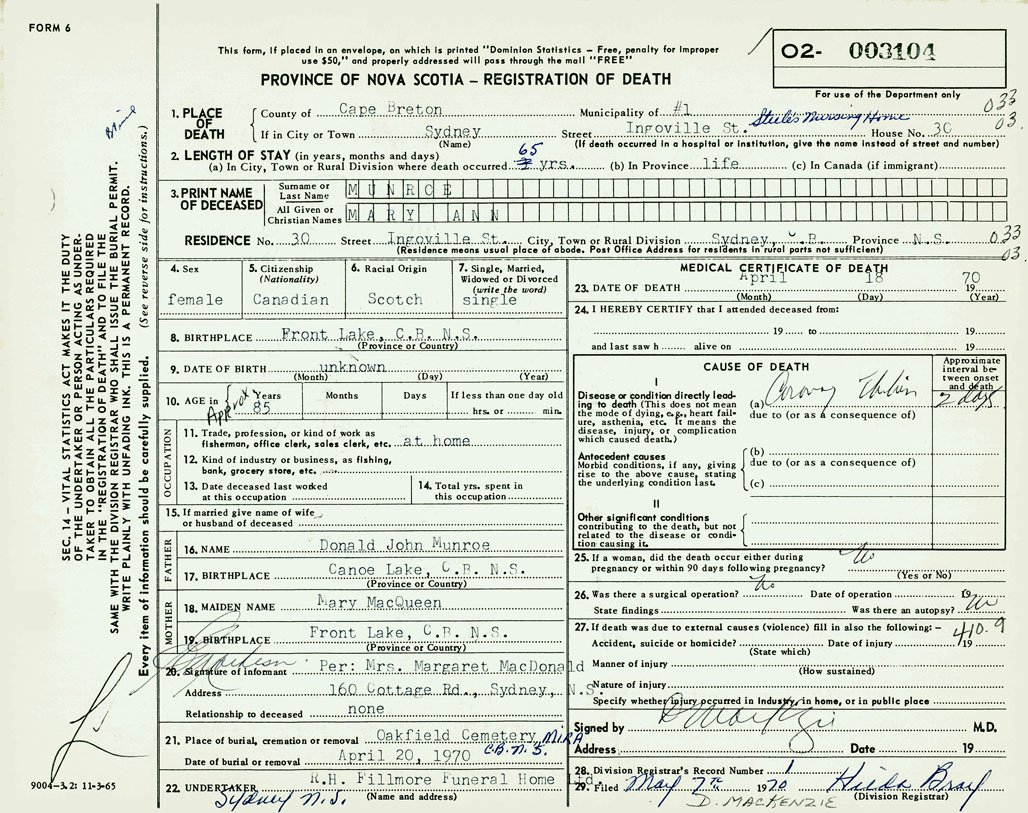 FORM 6
This form, if placed in an envelope, on which is printed "Dominion Statistics – Free, penalty for improper
use $50," and properly addressed will pass through the mail "FREE"
PROVINCE OF NOVA SCOTIA – REGISTRATION OF DEATH
O2- 003104
For use of the Department only
033
03.
1. PLACE OF DEATH
County of Cape Breton Municipality of #1
Steele's Nursing Home
If in City or Town Sydney Street Ingoville St. House No. 30
(Name) (If death occurred in a hospital or institution, give the name instead of street and number)
2. LENGTH OF STAY (in years, months and days)
(a) In City, Town or Rural Division where death occurred 65 yrs. (b) In Province life (c) In Canada (if immigrant)
3. PRINT NAME OF DECEASED
Surname or Last Name MUNROE
All Given or Christian Names MARY ANN
RESIDENCE No. 30 Street Ingoville St. City, Town or Rural Division Sydney, C.B. Province N.S.
(Residence means usual place of abode. Post Office Address for residents in rural parts not sufficient)
033
03.
4. Sex
female
5. Citizenship (Nationality)
Canadian
6. Racial Origin
Scotch
7. Single, Married, Widowed or Divorced (write the word)
single
8. BIRTHPLACE Front Lake, C.B. N.S.
(Province or Country)
9. DATE OF BIRTH unknown
(Month) (Day) (Year)
10. AGE in Years Months Days If less than one day old
Approx 85 hrs. or min.
OCCUPATION
11. Trade, profession, or kind of work as
fisherman, office clerk, sales clerk, etc. at home
12. Kind of industry or business, as fishing,
bank, grocery store, etc.
13. Date deceased last worked
at this occupation
14. Total yrs. spent in
this occupation
15. If married give name of wife
or husband of deceased
FATHER
16. NAME Donald John Munroe
17. BIRTHPLACE Canoe Lake, C.B. N.S.
(Province or Country)
MOTHER
18. MAIDEN NAME Mary MacQueen
19. BIRTHPLACE Front Lake, C.B. N.S.
(Province or Country)
20. Signature of informant Per: Mrs. Margaret MacDonald
Address 160 Cottage Rd., Sydney, N.S.
Relationship to deceased none
21. Place of burial, cremation or removal Oakfield Cemetery, MIRA
C.B. N.S.
Date of burial or removal April 20, 1970
22. UNDERTAKER R.H. Fillmore Funeral Home Ltd.
Sydney N.S. (Name and address)
MEDICAL CERTIFICATE OF DEATH
23. DATE OF DEATH April 18 1970
(Month) (Day) (Year)
24. I HEREBY CERTIFY that I attended deceased from:
19 to 19
and last saw h alive on 19
CAUSE OF DEATH
Approximate interval between onset and death
I
Disease or condition directly leading to death (This does not mean
the mode of dying, e.g., heart failure, asthenia, etc. It means the
disease, injury, or complication
which caused death.)
(a) 2 days
due to (or as a consequence of)
Antecedent causes
Morbid conditions, if any, giving
rise to the above cause, stating
the underlying condition last.
(b)
due to (or as a consequence of)
(c)
II
Other significant conditions
contributing to the death, but not
related to the disease or condition causing it.
25. If a woman, did the death occur either during
pregnancy or within 90 days following pregnancy? No
(Yes or No)
26. Was there a surgical operation? No Date of operation 19
State findings Was there an autopsy? No
27. If death was due to external causes (violence) fill in also the following: –
410.9
Accident, suicide or homicide? Date of injury 19
(State which)
Manner of injury
(How sustained)
Nature of injury
Specify whether injury occurred in industry, in home, or in public place
Signed by M.D.
Address Date 19
28. Division Registrar's Record Number 1
29. Filed May 7th 1970 Hilda Bray
D. MACKENZIE (Division Registrar)
SEC. 14 – VITAL STATISTICS ACT MAKES IT THE DUTY
OF THE UNDERTAKER OR PERSON ACTING AS UNDERTAKER TO OBTAIN ALL THE PARTICULARS REQUIRED
IN THE "REGISTRATION OF DEATH" AND TO FILE THE
SAME WITH THE DIVISION REGISTRAR WHO SHALL ISSUE THE BURIAL PERMIT.
WRITE PLAINLY WITH UNFADING INK. THIS IS A PERMANENT RECORD.
Every item of information should be carefully supplied. (See reverse side for instructions.)
9004–3.2: 11-3-65